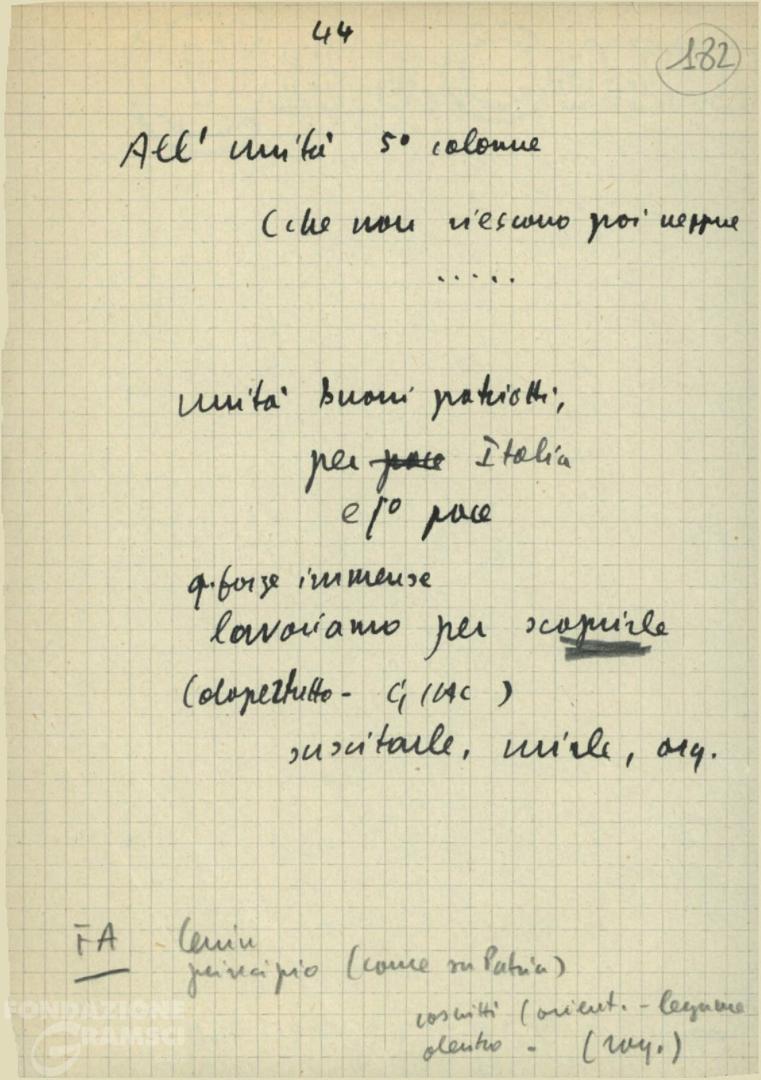 44
182
All' unità 5° colonne
(che non riescono poi neppure
.....
unità buoni patriotti,
per pace Italia
e pace
forze immense
lavoriamo per scoprirle
(dapertutto -
suscitarle, unirle, org.
FA Lenin
principio (come su Patria)
coscritti (orient. - legame
dentro -
FONDAZIONE
GRAMSCI